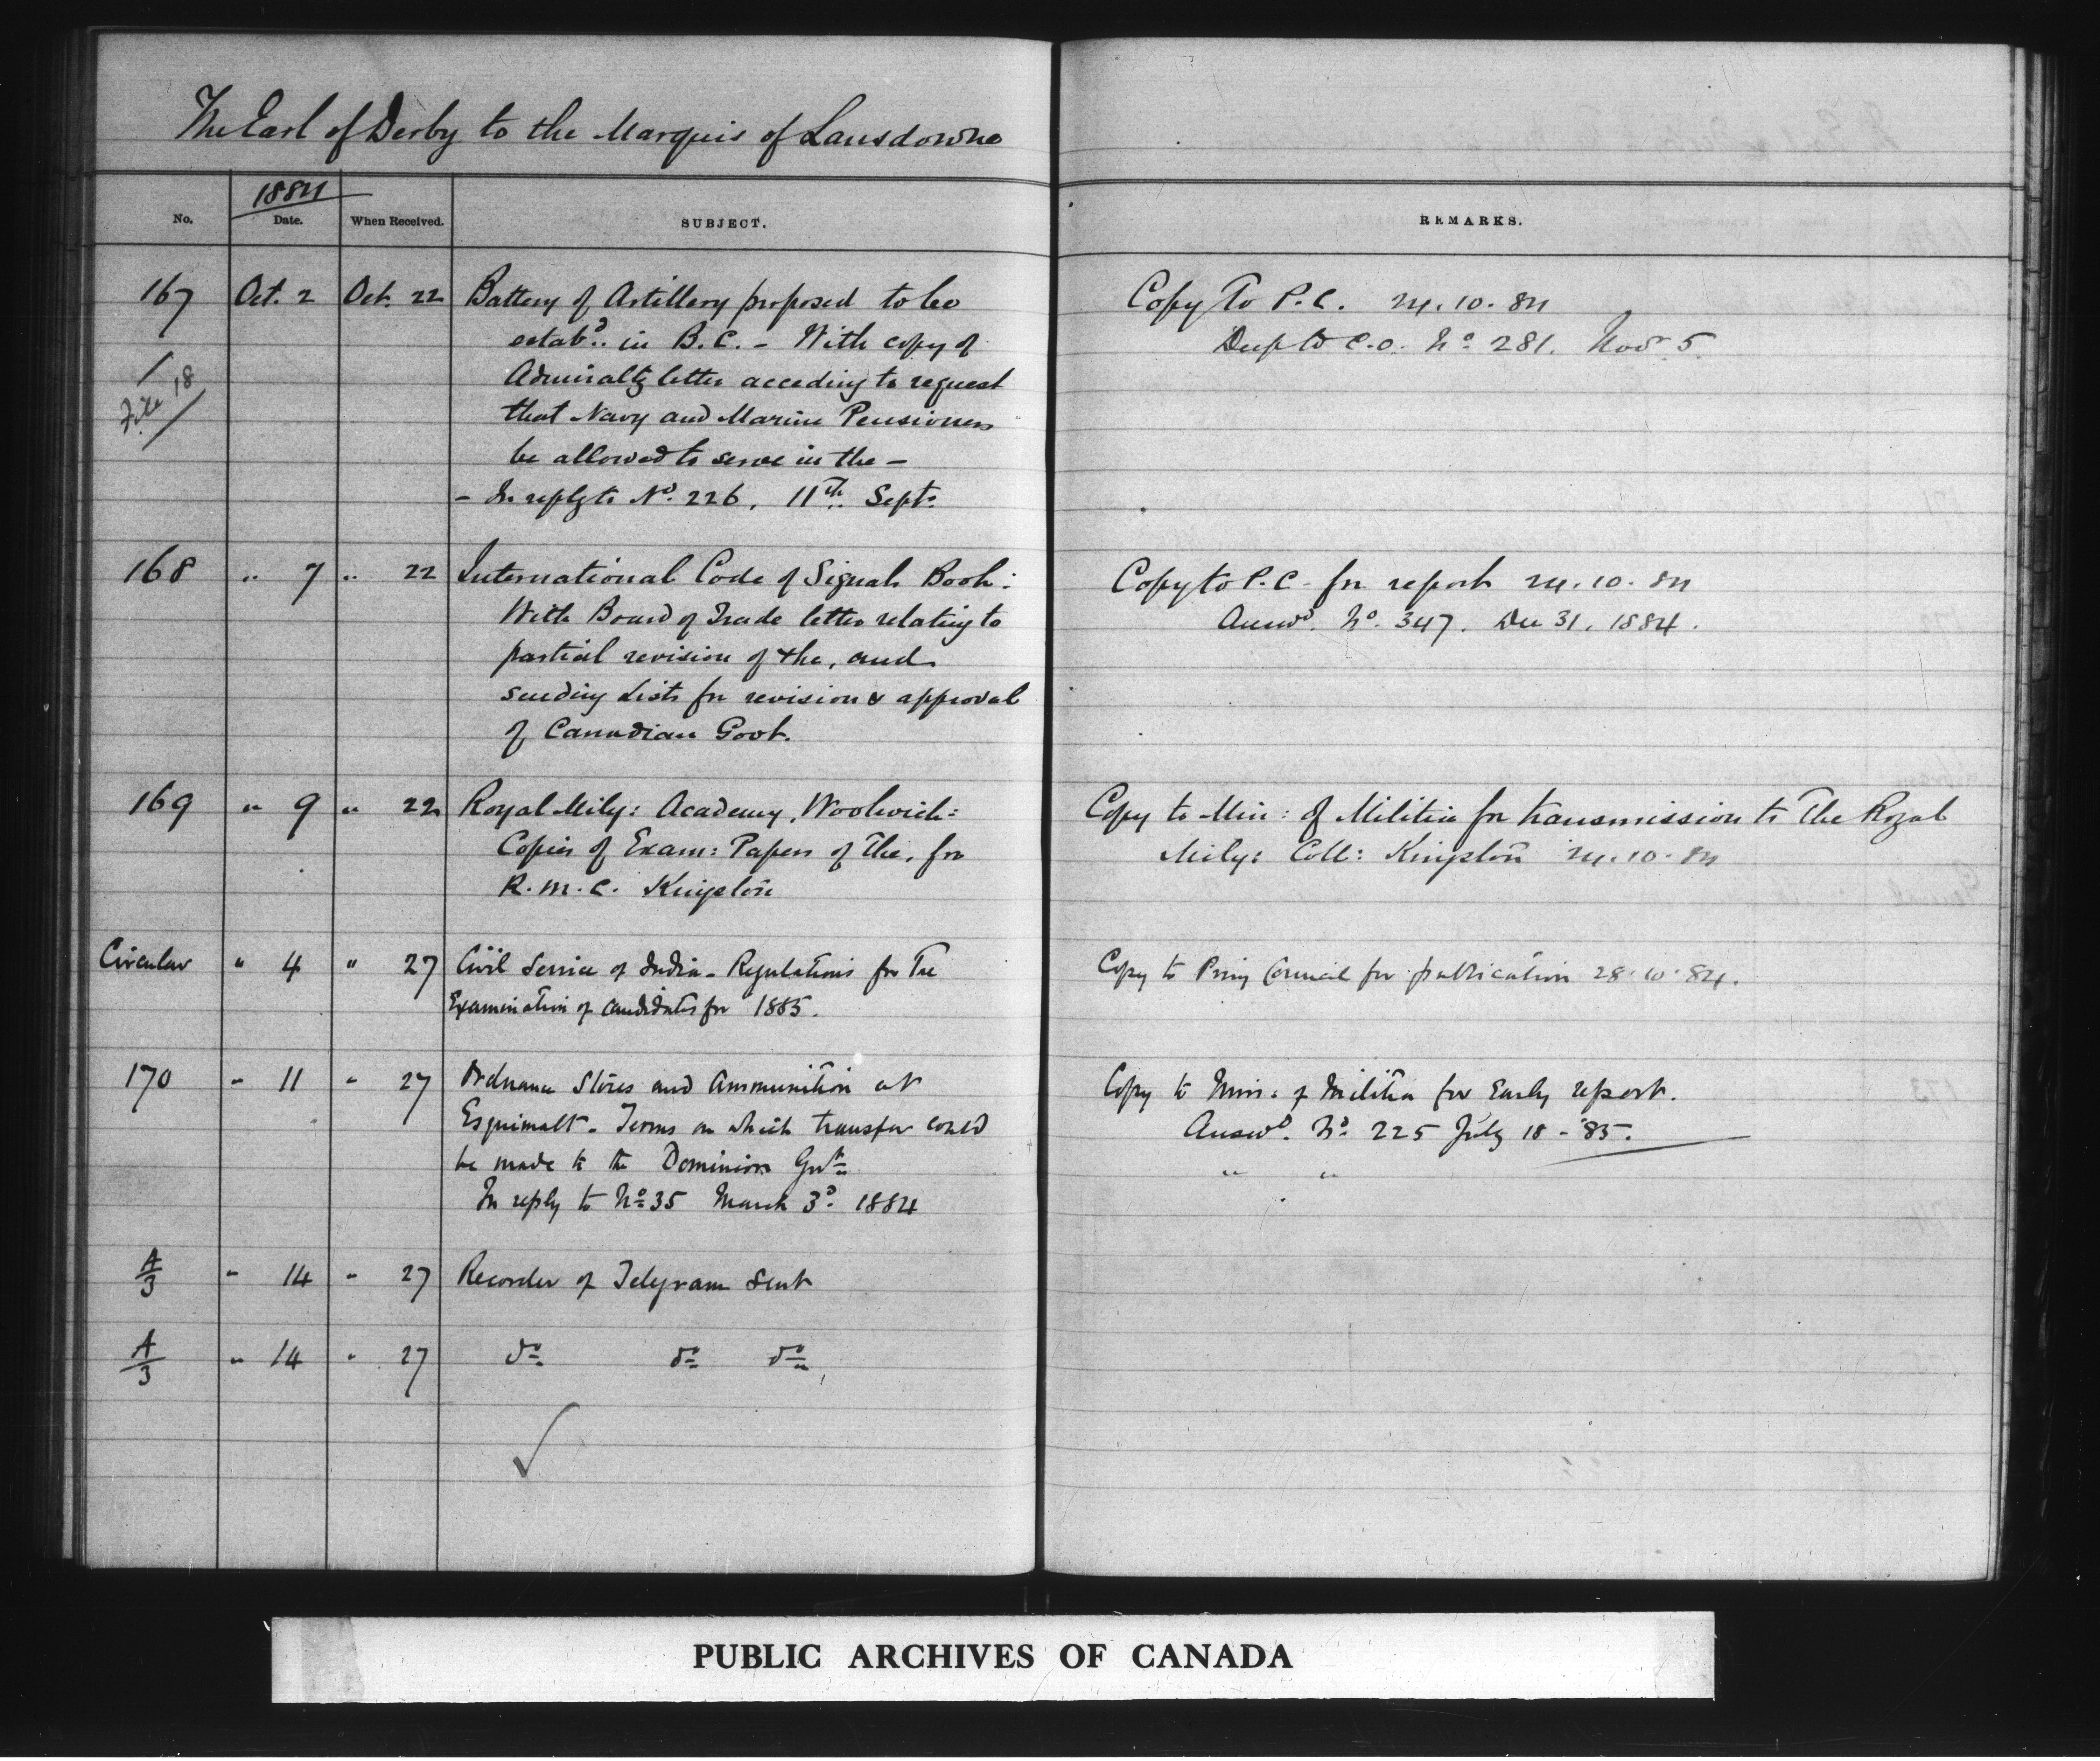 The Earl of Derby to the Marquis of Lansdowne
1884
No. Date. When Received. SUBJECT. REMARKS.
167 Oct. 2 Oct. 22 Battery of Artillery proposed to be Copy to P.C. 24.10.84
estabd. in B.C. - With copy of Desp to C.O. No 281. Nov 5
Admiralty letter acceding to request
File 18
that Navy and Marine Pensioners
be allowed to serve in the -
- In reply to No. 226, 11th Sept.
168 " 7 " 22 International Code of Signals Book: Copy to P.C. for report 24.10.84
With Board of Trade letter relating to Answd. No. 347. Dec 31, 1884.
partial revision of the, and
sending Lists for revision & approval
of Canadian Govt.
169 " 9 " 22 Royal Mily: Academy, Woolwich: Copy to Min: of Militia for transmission to the Royal
Copies of Exam: Papers of the, for Mily: Coll: Kingston 24.10.84
R.M.C. Kingston
Circular " 4 " 27 Civil Service of India - Regulations for the Copy to Privy Council for publication 28.10.84.
Examination of candidates for 1885.
170 " 11 " 27 Ordnance Stores and Ammunition at Copy to Min: of Militia for early report.
Esquimalt - Terms on which transfer could Answd. No. 225 July 18 - '85.
be made to the Dominion Govt. " "
In reply to No 35 March 3d. 1884
A/3 " 14 " 27 Recorder of Telegram sent
A/3 " 14 " 27 do do do
PUBLIC ARCHIVES OF CANADA